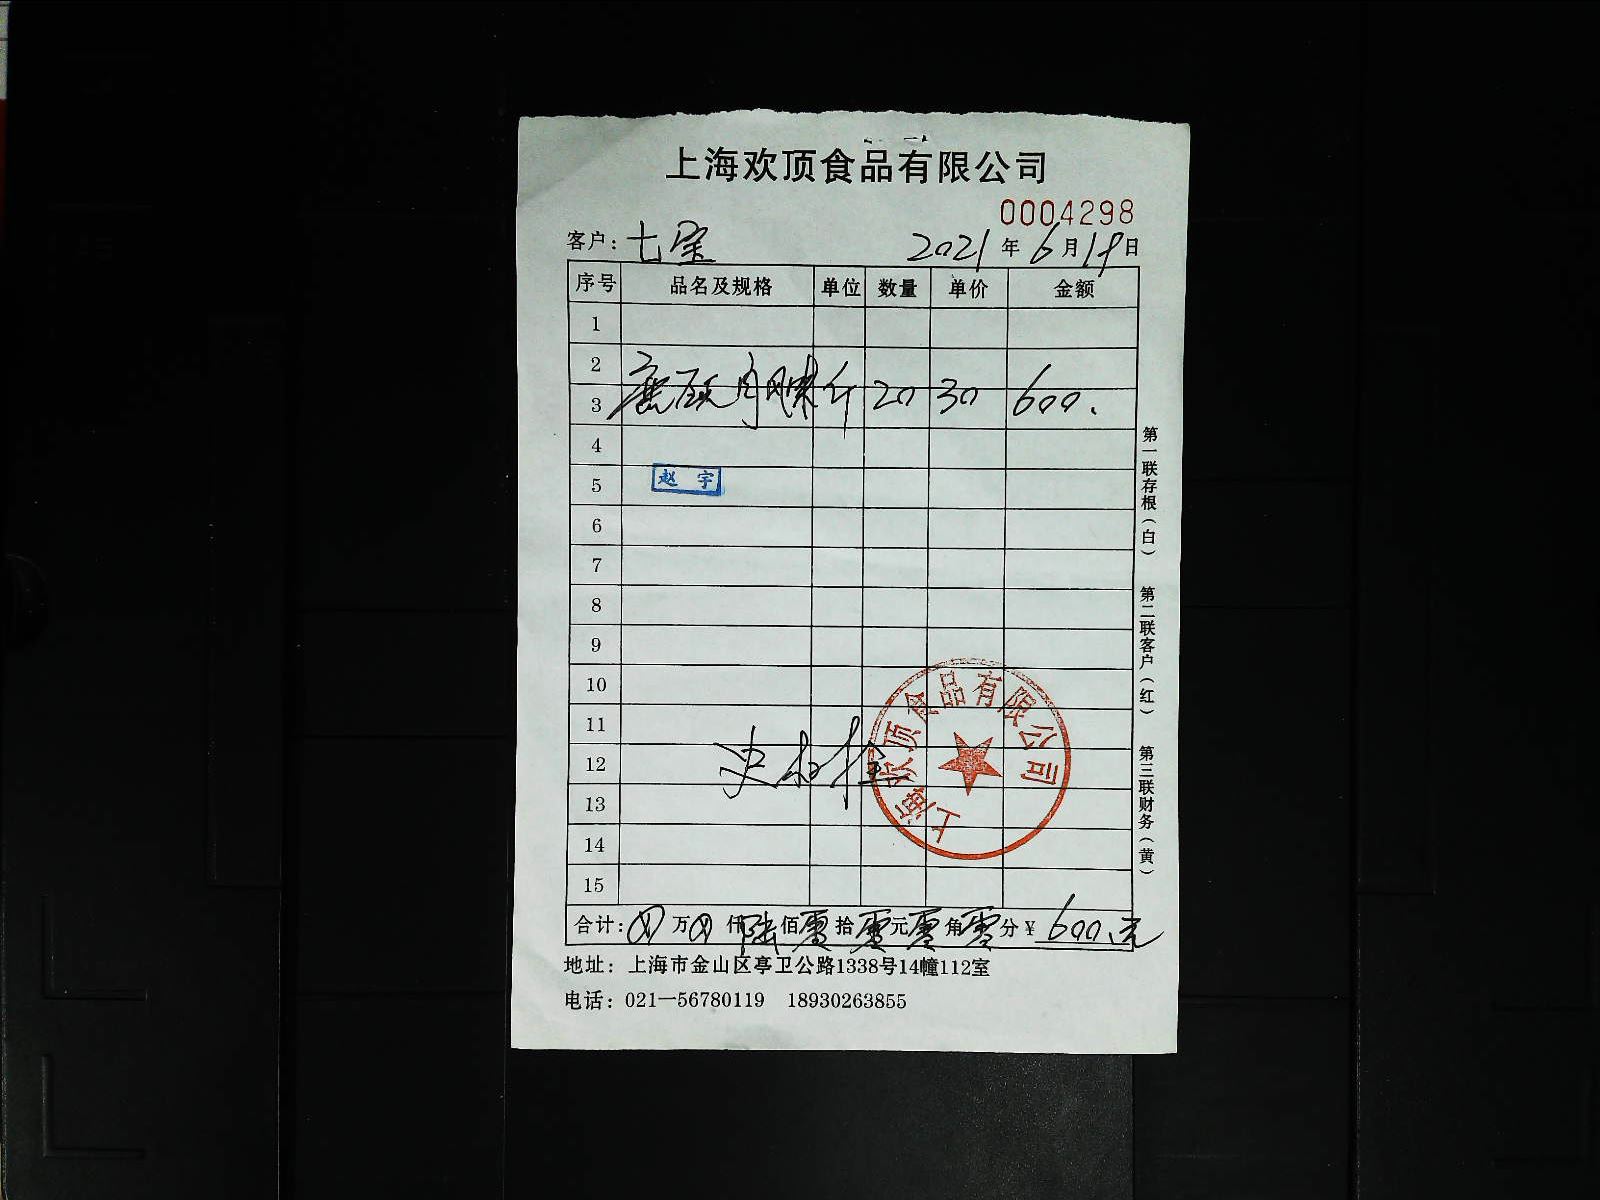 上海欢顶食品有限公司
0004298
客户：七宝 2021年6月19日
序号 品名及规格 单位 数量 单价 金额
1
2
3 斤 20 30 600.
4
5 赵宇
6
7
8
9
10
11
12
13
14
15
上海欢顶食品有限公司
合计：⊗万⊗仟陆佰零拾零元零角零分¥600.元
地址：上海市金山区亭卫公路1338号14幢112室
电话：021-56780119 18930263855
第一联存根（白） 第二联客户（红） 第三联财务（黄）